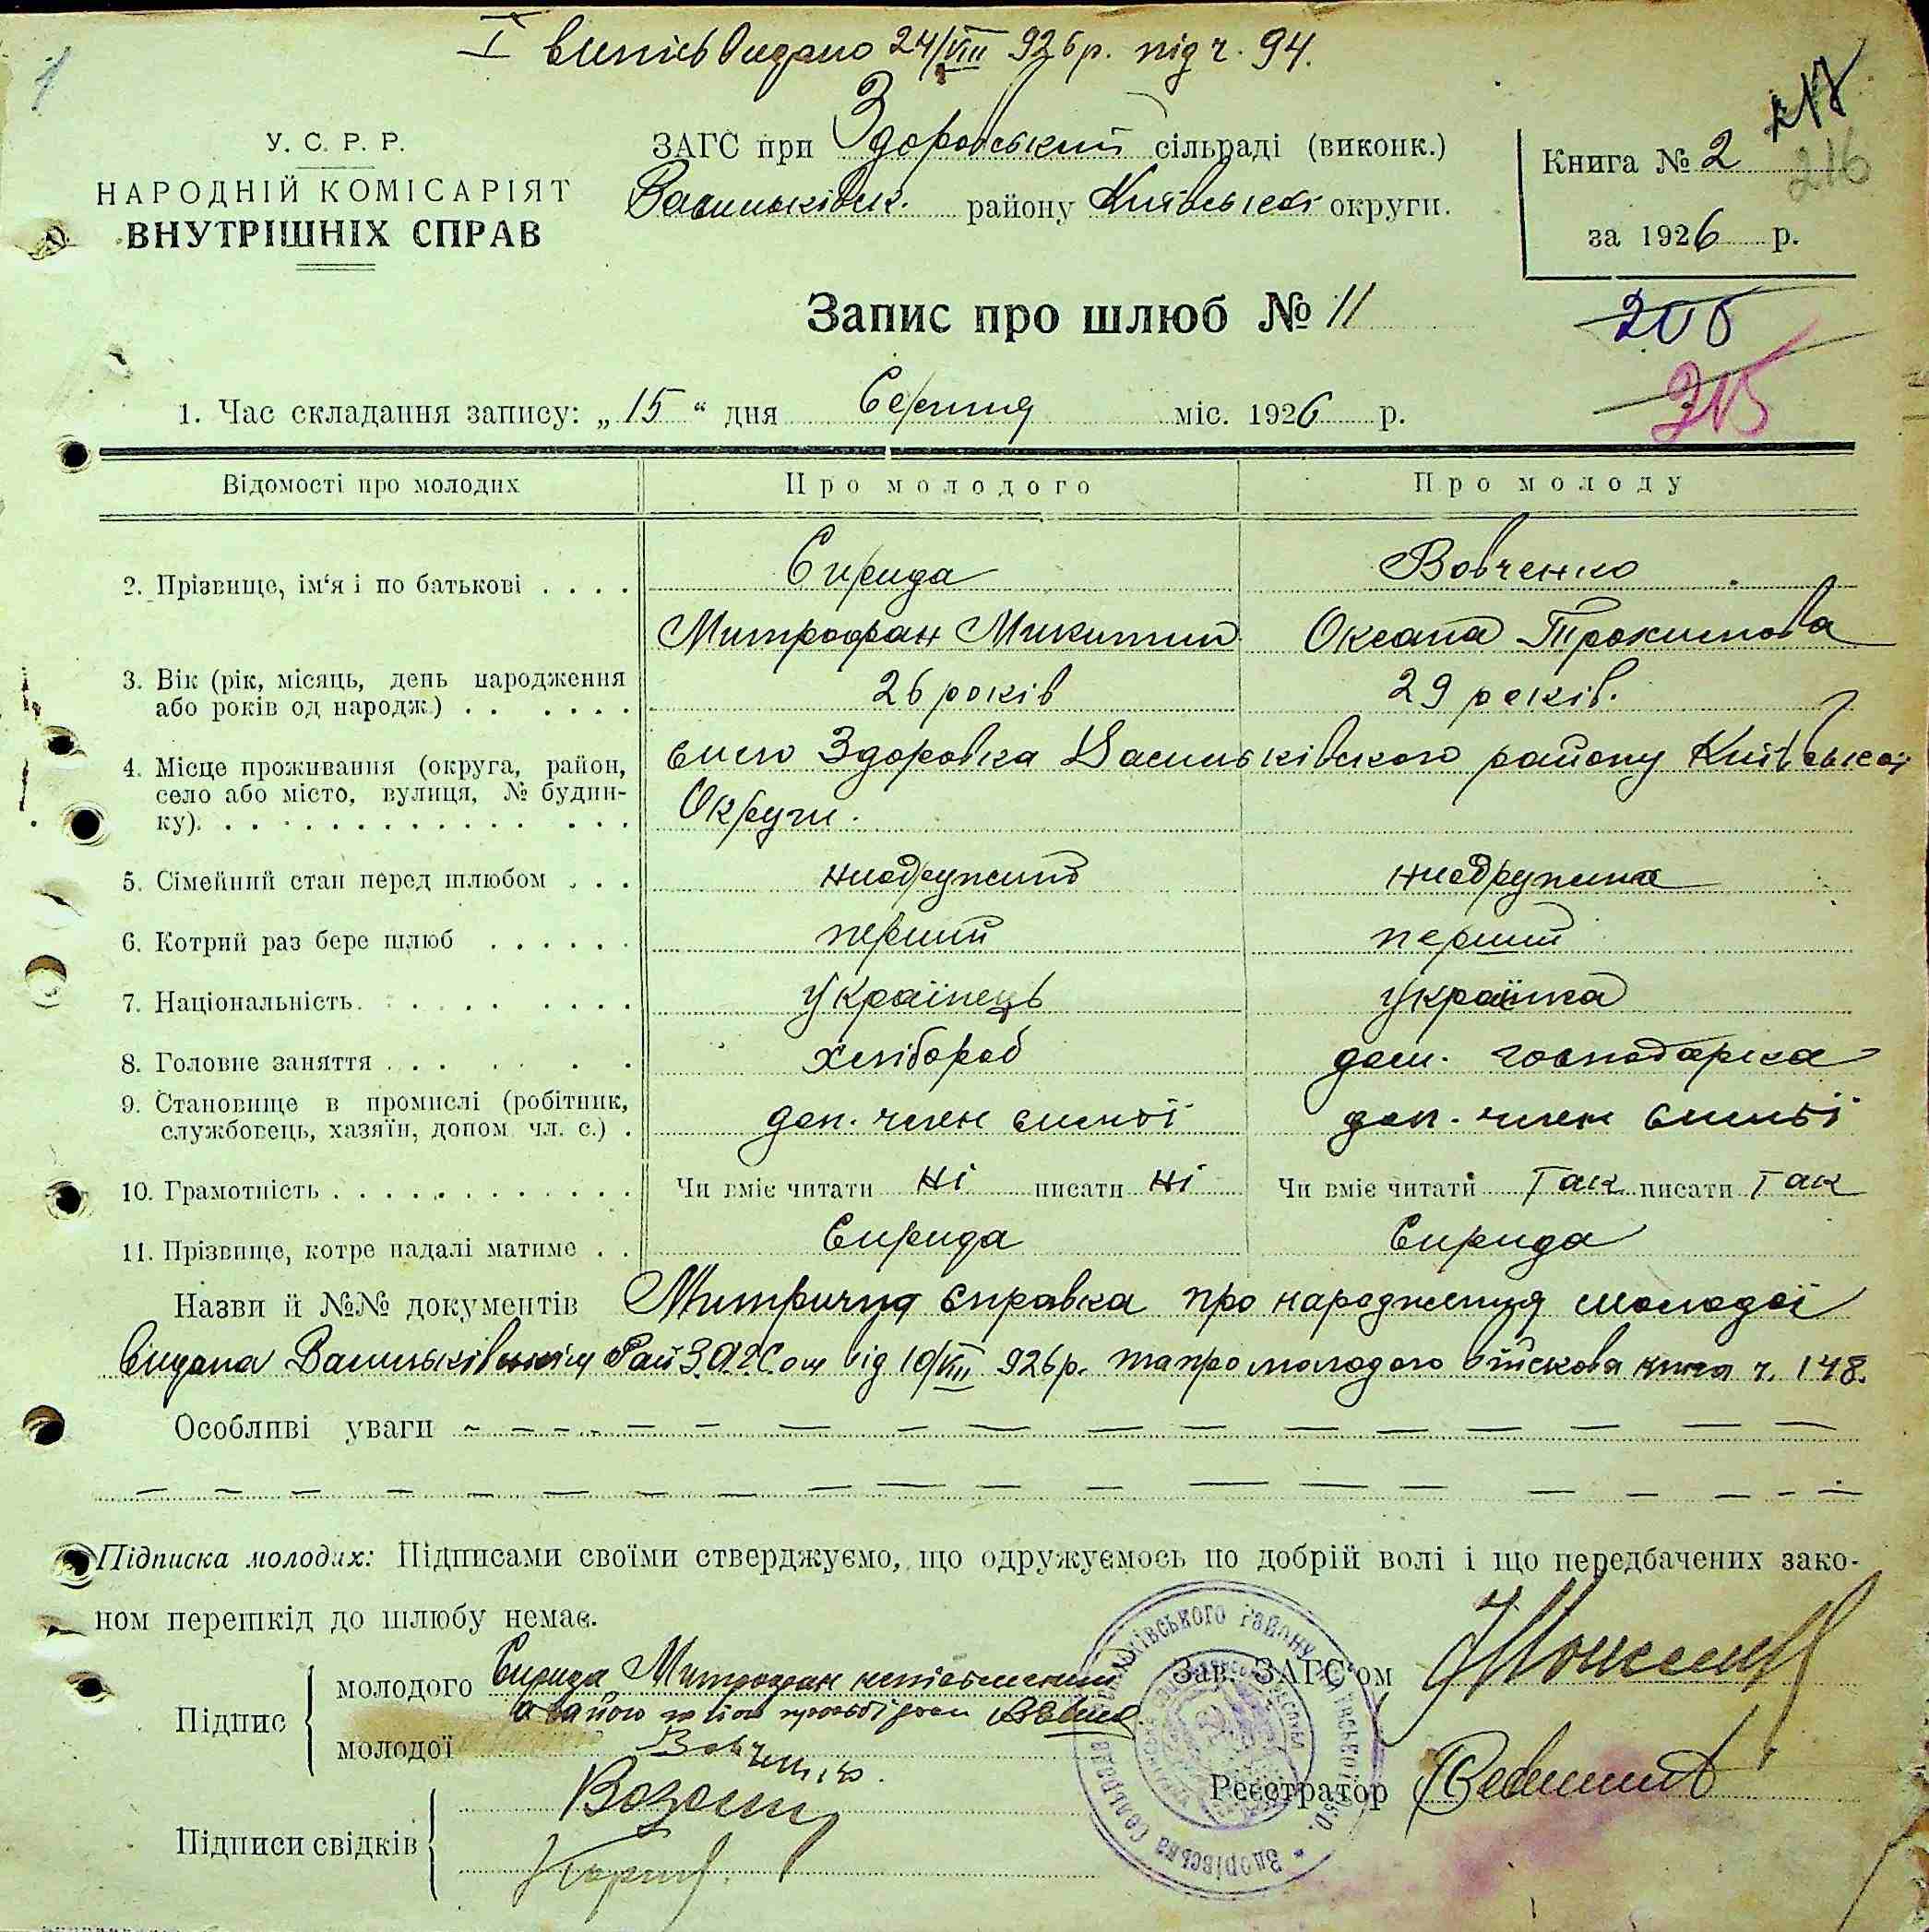 I випісь Видано 24/VIII 926 р. під ч. 94.
У. С. Р. Р.
НАРОДНІЙ КОМІСАРІЯТ
ВНУТРІШНІХ СПРАВ
ЗАГС при Здоровський сільраді (виконк.)
Васильківськ. району Київської округи.
Книга № 2
217
216
за 1926 р.
Запис про шлюб № 11
206
215
1. Час складання запису: „15“ дня Серпня міс. 1926 р.
Відомості про молодих Про молодого Про молоду
2. Прізвище, ім‘я і по батькові . . . . Сирида Вовченко
Митрофан Микитин Оксана Трохимова
3. Вік (рік, місяць, день народження 26 років 29 років.
або років од народж.) . . . . . .
4. Місце проживання (округа, район, село Здоровка Васильківского району Київської
село або місто, вулиця, № будин- Округи.
ку). . . . . . . . . . . . . . . .
5. Сімейний стан перед шлюбом . . . неодружений неодружена
6. Котрий раз бере шлюб . . . . . . перший перший
7. Національність. . . . . . . . . українець українка
8. Головне заняття . . . . . . . хлібороб дом. господарка
9. Становище в промислі (робітник, доп. член сем'ї доп. член сем'ї
службовець, хазяїн, допом. чл. с.) .
10. Грамотність . . . . . . . . . . . . Чи вміє читати Ні писати Ні Чи вміє читати Так писати Так
11. Прізвище, котре надалі матиме . . Сирида Сирида
Назви й №№ документів Метрична справка про народження молодої
видана Васильківським Рай З.А.Г.Сом від 10/VIII 926 р. та про молодого військова книга ч. 148.
Особливі уваги
Підписка молодих: Підписами своїми стверджуємо, що одружуємось по добрій волі і що передбачених зако-
ном перешкід до шлюбу немає.
Підпис
молодого Сирида Митрофан неписьменний
а за його
молодої Вовченко.
Зав. ЗАГС‘ом
Реєстратор
Підписи свідків
Здорівська Сільрада Васильківського району